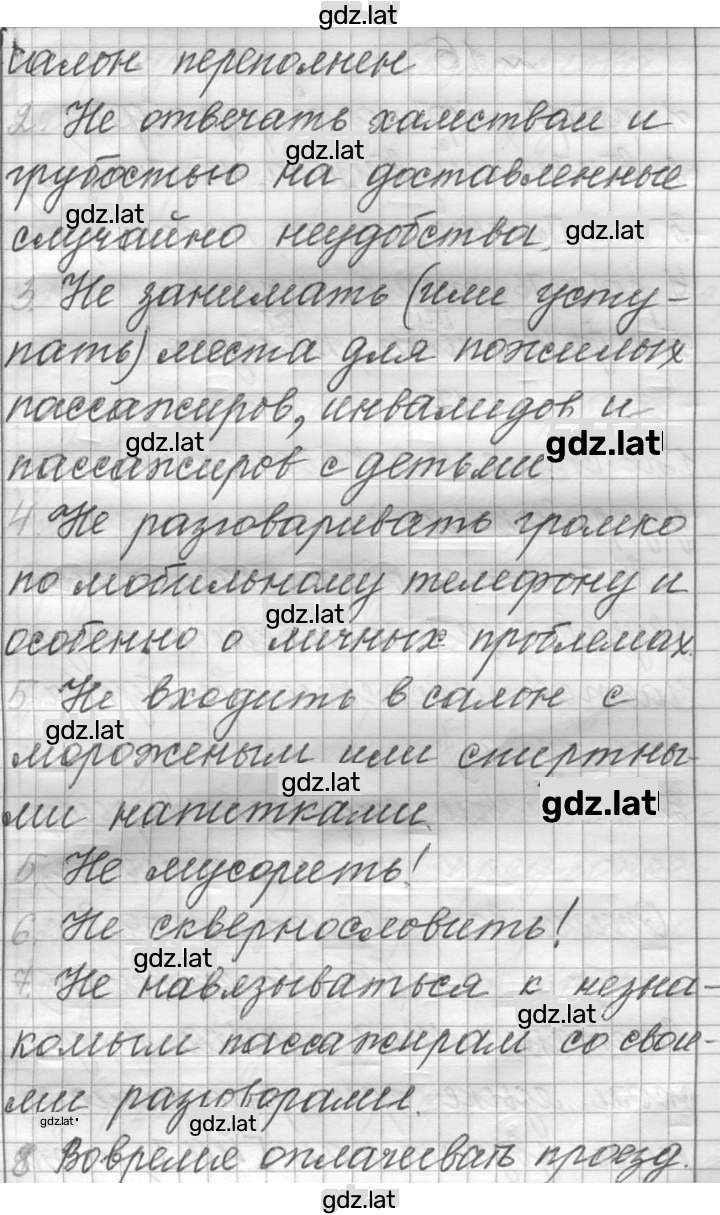 gdz.lat
салон переполнен
2. Не отвечать хамством и
gdz.lat
грубостью на доставленные
gdz.lat
случайно неудобства.
gdz.lat
3. Не занимать (или усту-
пать) места для пожилых
пассажиров, инвалидов и
gdz.lat
gdz.lat
пассажиров с детьми.
4 Не разговаривать громко
по мобильному телефону и
gdz.lat
особенно о личных проблемах.
5 Не входить в салон с
gdz.lat
мороженым или спиртны-
gdz.lat
ми напитками.
gdz.lat
5. Не мусорить!
6. Не сквернословить!
gdz.lat
7. Не навязываться к незна-
gdz.lat
комым пассажирам со свои-
ми разговорами.
gdz.lat
gdz.lat
8 Вовремя оплачивать проезд.
gdz.lat